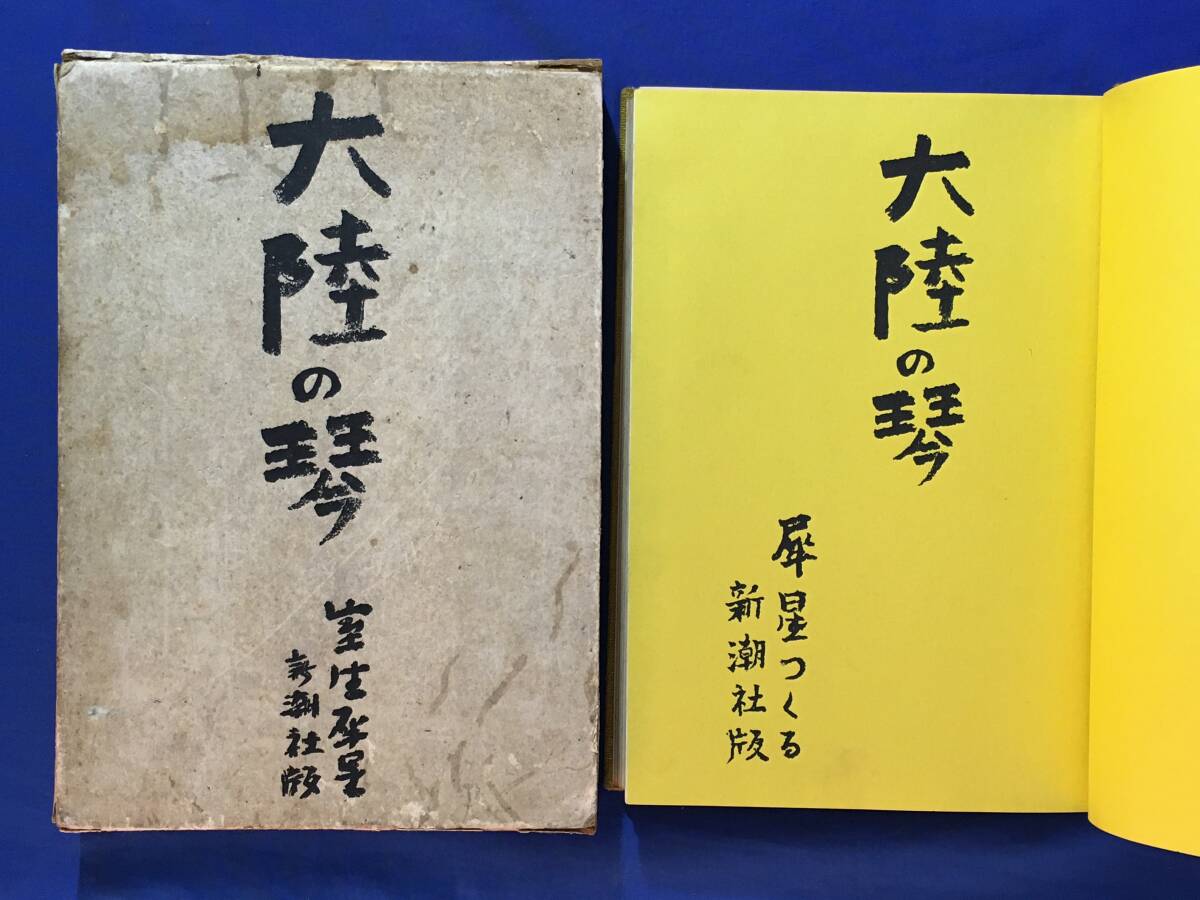 大陸の琴
室生犀星
新潮社版
大陸の琴
犀星つくる
新潮社版